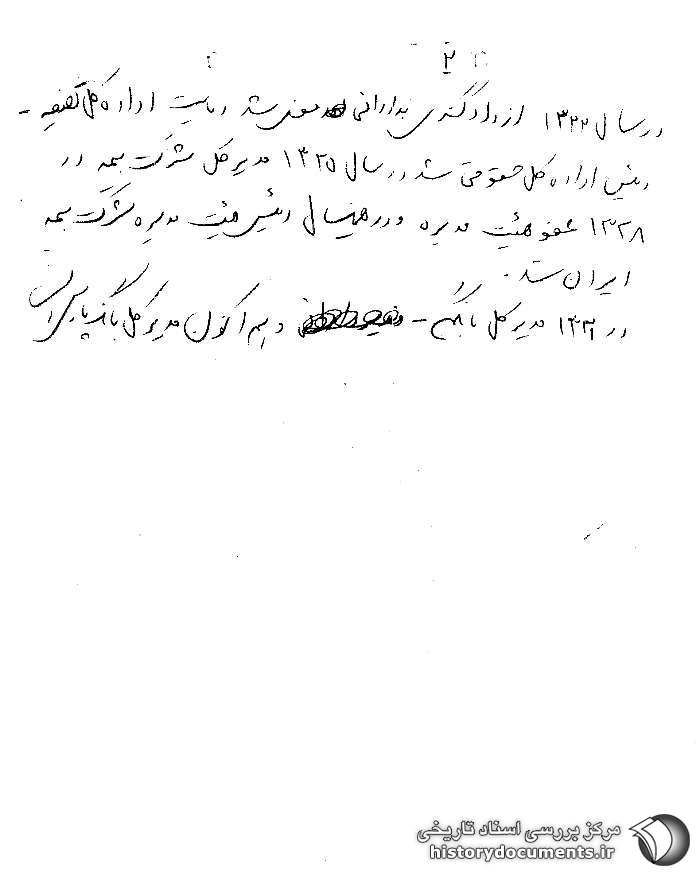 ۲
در سال ۱۳۲۲ از دادگستری بدارائی منتقل شد ریاست اداره کل تصفیه -
رئیس اداره کل حقوقی شد در سال ۱۳۲۵ مدیر کل شرکت بیمه در
۱۳۲۸ عضو هیئت مدیره و در همین سال رئیس هیئت مدیره شرکت بیمه
ایران شد.
در ۱۳۳۱ مدیر کل بانک - و هم اکنون مدیر کل بانک پارس است
مرکز بررسی اسناد تاریخی
historydocuments.ir